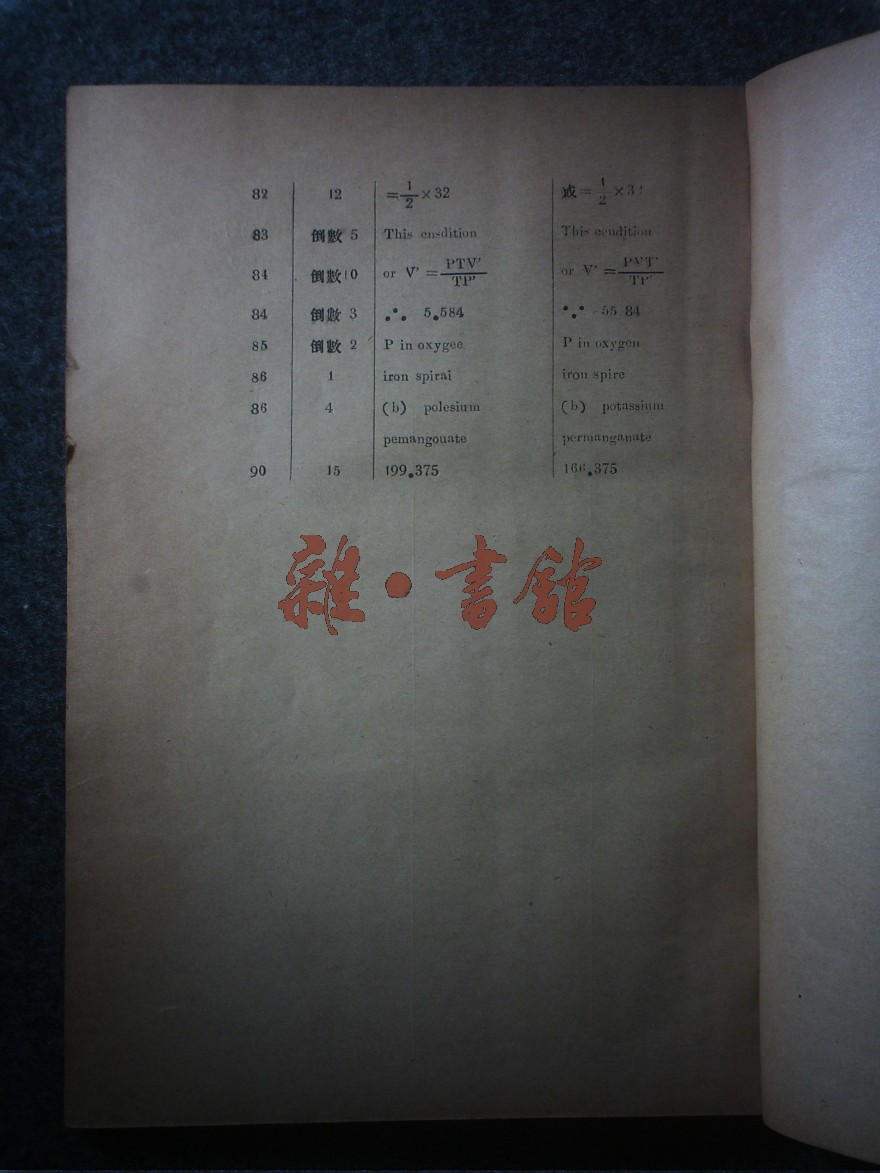 82 12 =1/2×32 或=1/2×3
83 倒數 5 This cnsdition This cendition
84 倒數10 or V' =PTV'/TP' or V' =PVT'/TP'
84 倒數 3 ∴ 5.584 ∵ 55.84
85 倒數 2 P in oxygee P in oxygen
86 1 iron spirai iron spire
86 4 (b) polesium (b) potassium
pemangouate permanganate
90 15 199.375 166.375
雜·書館